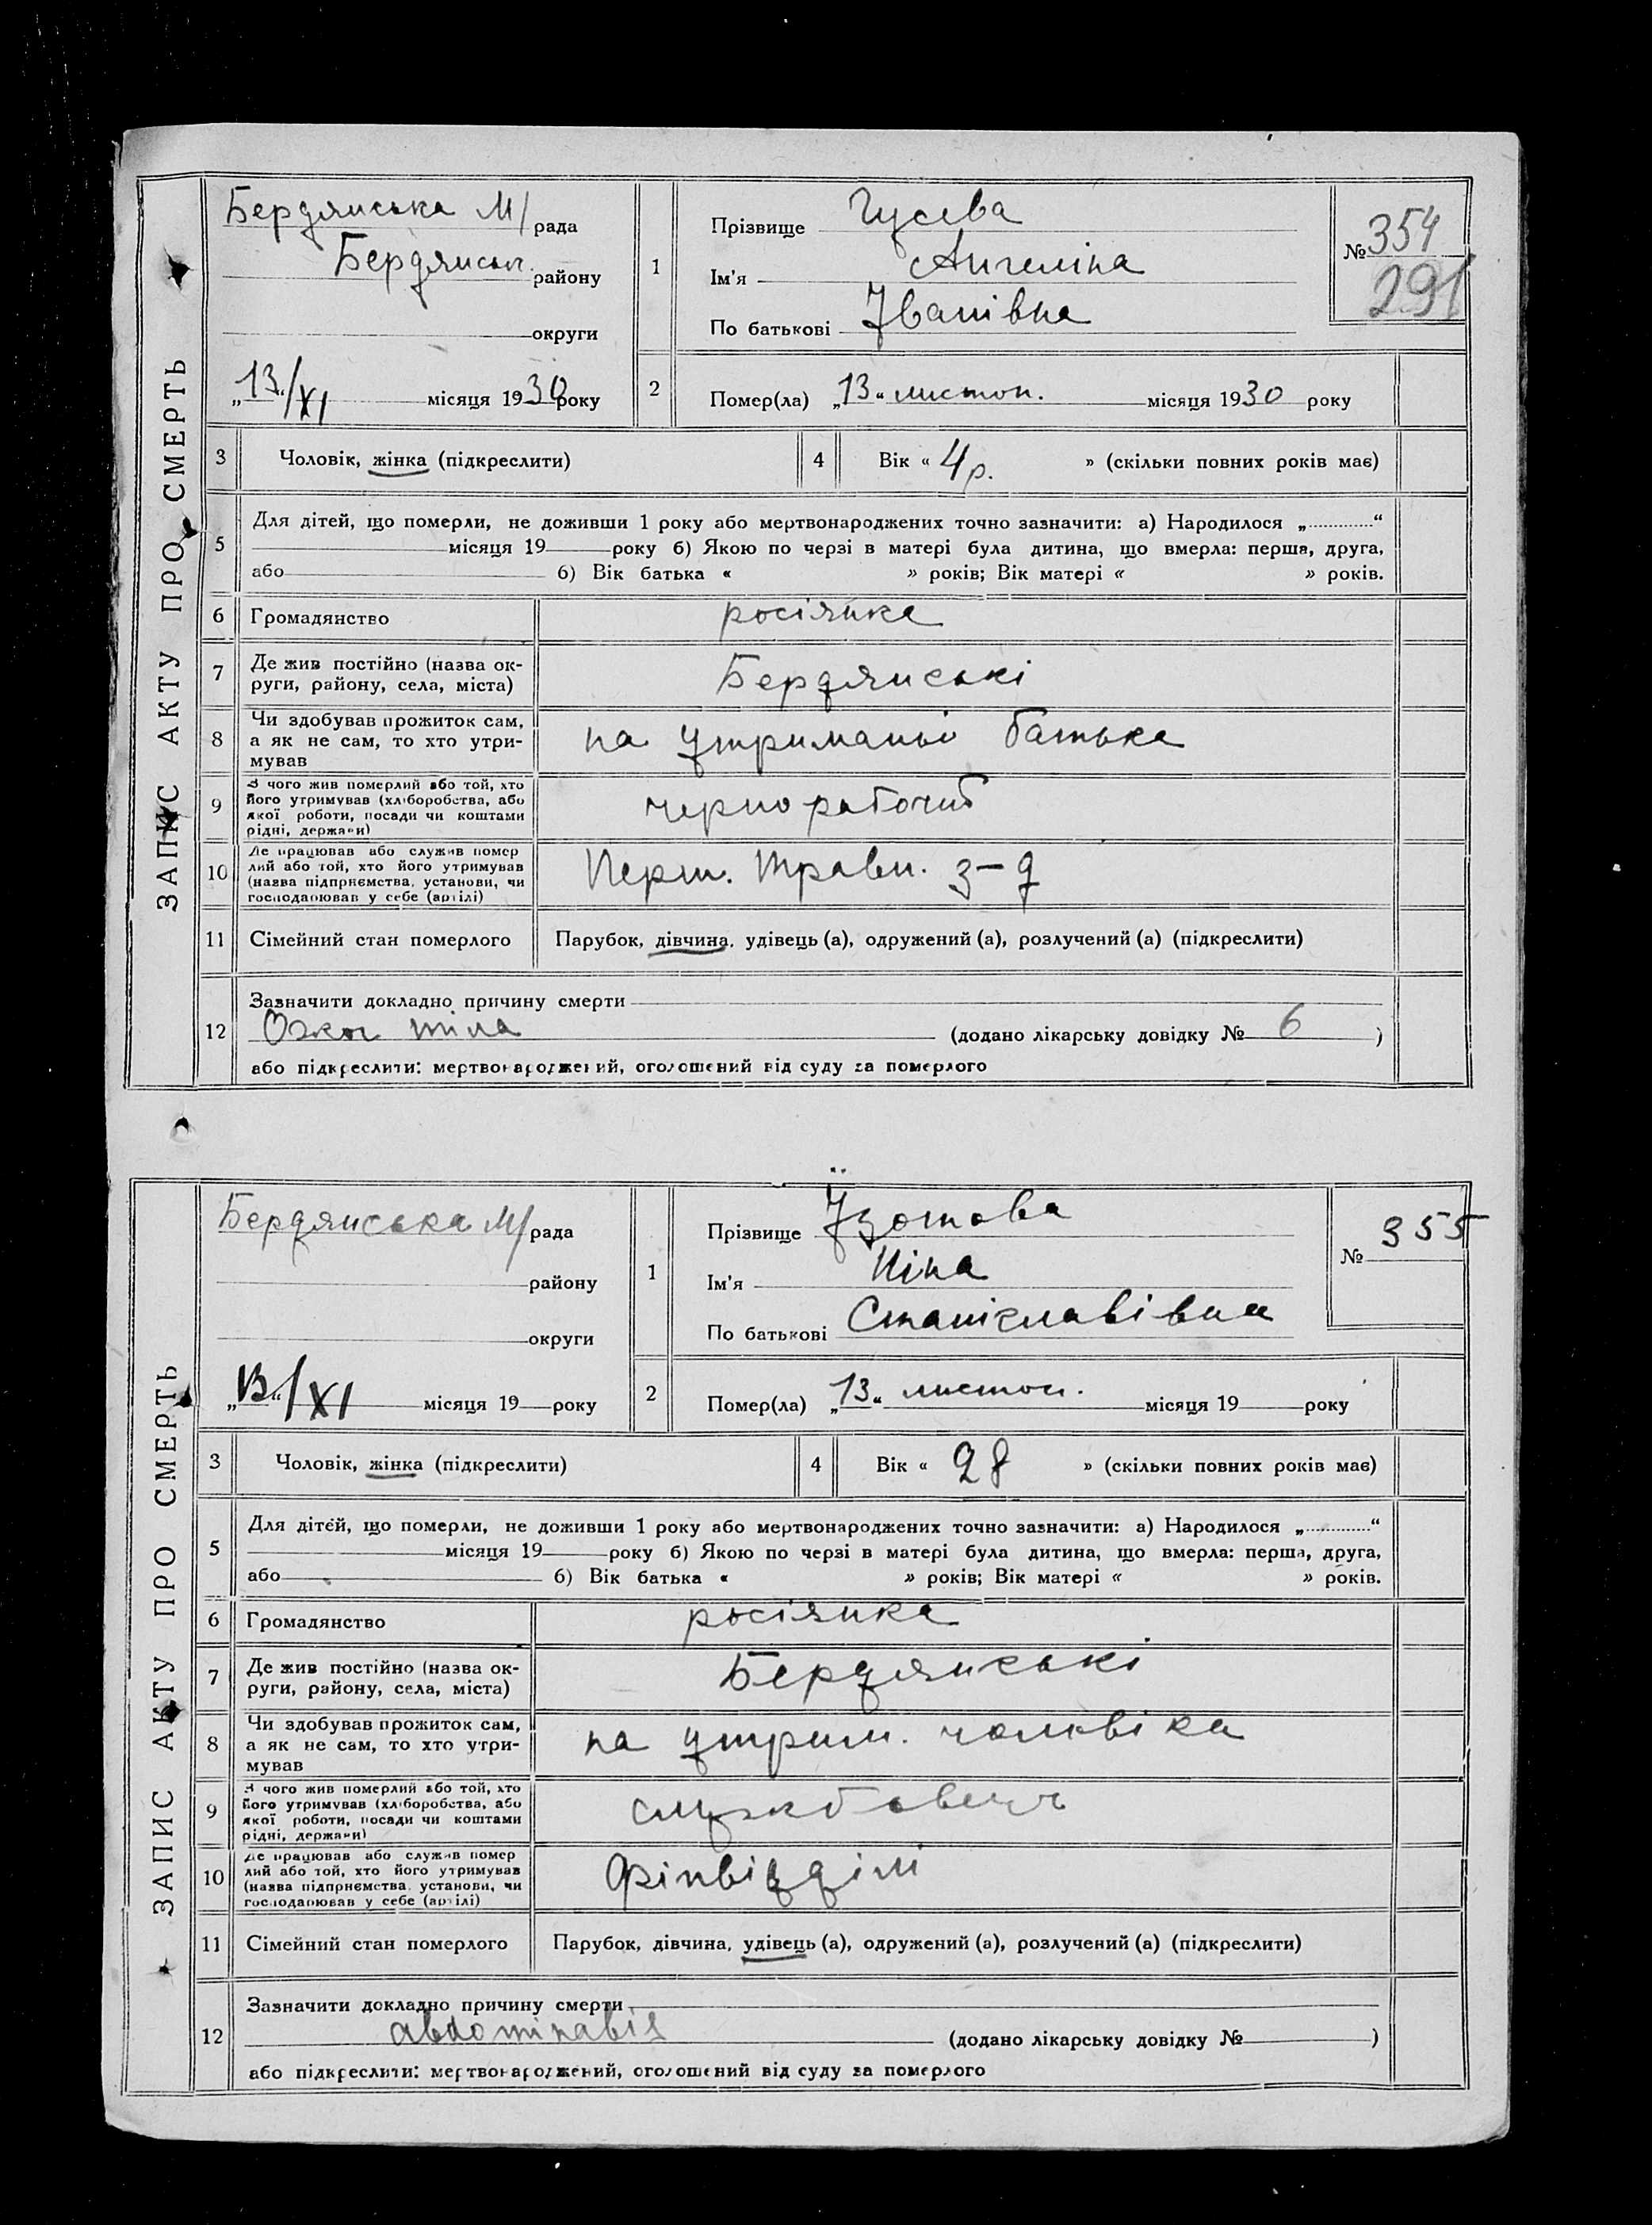 ЗАПИС АКТУ ПРО СМЕРТЬ
Бердянська М/ рада
Бердянськ. району
округи
„13“/XI місяця 1930 року
1
Прізвище Гусева
Ім'я Ангеліна
По батькові Іванівна
№ 354
291
2
Помер(ла) „13“ листоп. місяця 1930 року
3 Чоловік, жінка (підкреслити)
4 Вік « 4 р. » (скільки повних років має)
5 Для дітей, що померли, не доживши 1 року або мертвонароджених точно зазначити: а) Народилося „ “
місяця 19 року б) Якою по черзі в матері була дитина, що вмерла: перша, друга,
або б) Вік батька « » років; Вік матері « » років.
6 Громадянство росіянка
7 Де жив постійно (назва ок-
руги, району, села, міста) Бердянські
8 Чи здобував прожиток сам,
а як не сам, то хто утри-
мував на утриманьі батька
9 З чого жив померлий або той, хто
його утримував (хліборобства, або
якої роботи, посади чи коштами
рідні, держави) чернорабочий
10 Де працював або служив помер
лий або той, хто його утримував
(назва підприємства, установи, чи
господарював у себе (артілі) Перш. Травн. з-д
11 Сімейний стан померлого Парубок, дівчина, удівець (а), одружений (а), розлучений (а) (підкреслити)
12 Зазначити докладно причину смерти
Ожог тіла (додано лікарську довідку № 6 )
або підкреслити: мертвонароджений, оголошений від суду за померлого
ЗАПИС АКТУ ПРО СМЕРТЬ
Бердянська М/ рада
району
округи
„13“/XI місяця 19 року
1
Прізвище Ізотова
Ім'я Ніна
По батькові Станіславівна
№ 355
2
Помер(ла) „13“ листоп. місяця 19 року
3 Чоловік, жінка (підкреслити)
4 Вік « 28 » (скільки повних років має)
5 Для дітей, що померли, не доживши 1 року або мертвонароджених точно зазначити: а) Народилося „ “
місяця 19 року б) Якою по черзі в матері була дитина, що вмерла: перша, друга,
або б) Вік батька « » років; Вік матері « » років.
6 Громадянство росіянка
7 Де жив постійно (назва ок-
руги, району, села, міста) Бердянські
8 Чи здобував прожиток сам,
а як не сам, то хто утри-
мував на утрим. чоловіка
9 З чого жив померлий або той, хто
його утримував (хліборобства, або
якої роботи, посади чи коштами
рідні, держави) службовець
10 Де працював або служив помер
лий або той, хто його утримував
(назва підприємства, установи, чи
господарював у себе (артілі) Фінвідділі
11 Сімейний стан померлого Парубок, дівчина, удівець (а), одружений (а), розлучений (а) (підкреслити)
12 Зазначити докладно причину смерти
(додано лікарську довідку № )
або підкреслити: мертвонароджений, оголошений від суду за померлого